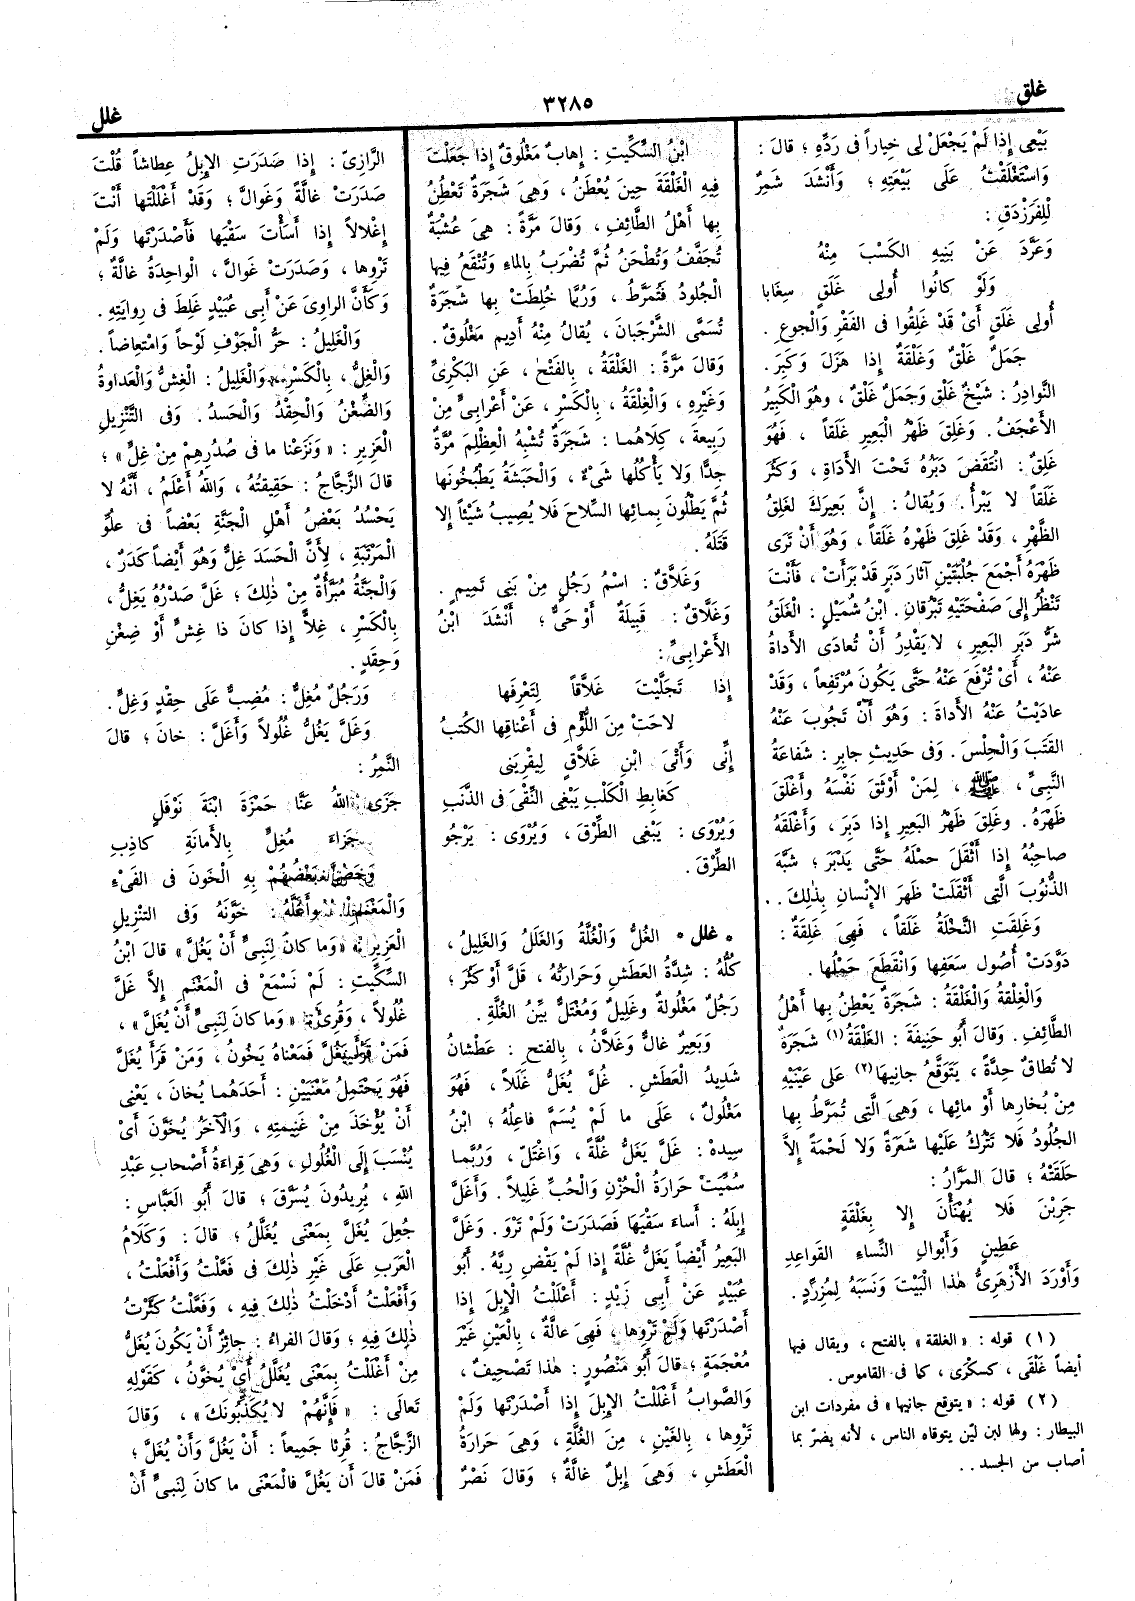 غلق
٣٢٨٥
غلل
بَيْعِى إِذَا لَمْ يَجْعَلْ لِى خِياراً فى رَدِّهِ ؛ قالَ :
وَاسْتَغْلَقْتُ عَلَى بَيْعَتِهِ ؛ وَأَنْشَدَ شَمِرٌ
لِلْفَرَزْدَقِ :
وَعَرَّدَ عَنْ بَنِيهِ الكَسْبَ مِنْهُ
وَلَوْ كانُوا أُولِى غَلَقٍ سِغَابا
أُولِى غَلَقٍ أَىْ قَدْ غَلِقُوا فى الفَقْرِ وَالْجوعِ .
جَمَلٌ غَلْقٌ وَغَلْقَةٌ إِذا هَزَلَ وَكَبِرَ .
النَّوادِرُ : شَيْخٌ غَلْقٌ وَجَمَلٌ غَلْقٌ ، وهُوَ الْكَبِيرُ
الأَعْجَفُ . وَغَلِقَ ظَهْرُ الْبَعِيرِ غَلَقاً ، فَهُوَ
غَلِقٌ : انْتَقَضَ دَبَرُهُ تَحْتَ الأَداةِ ، وَكَثُرَ
غَلَقاً لا يَبْرأُ . وَيُقالُ : إِنَّ بَعِيرَكَ لَغَلِقُ
الظَّهْرِ ، وَقَدْ غَلِقَ ظَهْرُهُ غَلَقاً ، وَهُوَ أَنْ تَرَى
ظَهْرَهُ أَجْمَعَ جُلْبَتَيْنِ آثارَ دَبَرٍ قَدْ بَرَأَتْ ، فَأَنْتَ
تَنْظُرُ إِلَى صَفْحَتَيْهِ تَبْرُقانِ . ابْنُ شُمَيْلٍ : الْغَلَقُ
شَرُّ دَبَرِ الْبَعِيرِ ، لا يَقْدِرُ أَنْ تُعادَى الأَداةُ
عَنْهُ ، أَىْ تُرْفَعَ عَنْهُ حَتَّى يَكُونَ مُرْتَفِعاً ، وَقَدْ
عادَيْتُ عَنْهُ الأَداةَ : وَهُوَ أَنْ تَجُوبَ عَنْهُ
القَتَبَ وَالْحِلْسَ . وَفى حَدِيثِ جابِرٍ : شَفاعَةُ
النَّبِىِّ ، ﷺ ، لِمَنْ أَوْثَقَ نَفْسَهُ وأَغْلَقَ
ظَهْرَهُ . وغَلِقَ ظَهْرُ الْبَعِيرِ إِذا دَبِرَ ، وَأَغْلَقَهُ
صاحِبُهُ إِذا أَثْقَلَ حِمْلَهُ حَتَّى يَدْبَرَ ؛ شَبَّهَ
الذُّنُوبَ الَّتِى أَثْقَلَتْ ظَهْرَ الإِنْسانِ بِذلِكَ .
وَغَلِقَتِ النَّخْلَةُ غَلَقاً ، فَهِىَ غَلِقَةٌ :
دَوَّدَتْ أُصُولُ سَعَفِها وَانْقَطَعَ حَمْلُها .
وَالْغِلْقَةُ وَالْغَلْقَةُ : شَجَرَةٌ يَعْطِنُ بِها أَهْلُ
الطَّائِفِ . وَقالَ أَبُو حَنِيفَةَ : الغَلْقَةُ (١) شَجَرَةٌ
لا تُطاقُ حِدَّةً ، يَتَوَقَّعُ جانِيها (٢) عَلَى عَيْنَيْهِ
مِنْ بُخارِها أَوْ مائِها ، وَهِىَ الَّتِى تُمَرَّطُ بِها
الجُلُودُ فَلا تَتْرُكُ عَلَيْها شَعَرَةً وَلا لَحْمَةً إِلاَّ
حَلَقَتْهُ ؛ قالَ المَرَّارُ :
جَرِبْنَ فَلا يُهْنَأْنَ إِلا بِغَلْقَةٍ
عَطِينٍ وَأَبْوالِ النِّساءِ القَواعِدِ
وَأَوْرَدَ الأَزْهَرِىُّ هٰذا الْبَيْتَ وَنَسَبَهُ لِمُزَرِّدٍ .
(١) قوله : « الغلقة » بالفتح ، ويقال فيها
أيضاً غَلْقَى ، كسكْرى ، كما فى القاموس .
(٢) قوله : « يتوقع جانيها » فى مفردات ابن
البيطار : ولها لبن ليّن يتوقاه الناس ، لأنه يضرّ بما
أصاب من الجسد . .
ابْنُ السِّكِّيتِ : إِهابٌ مَغْلُوقٌ إِذا جَعَلْتَ
فِيهِ الْغَلْقَةَ حِينَ يُعْطَنُ ، وَهِىَ شَجَرَةٌ تَعْطِنُ
بِها أَهْلُ الطَّائِفِ ، وَقالَ مَرَّةً : هِىَ عُشْبَةٌ
تُجَفَّفُ وَتُطْحَنُ ثُمَّ تُضْرَبُ بِالماءِ وَتُنْقَعُ فِيها
الْجُلُودُ فَتُمَرَّطُ ، وَرُبَّما خُلِطَتْ بِها شَجَرَةٌ
تُسَمَّى الشَّرْجَبانَ ، يُقالُ مِنْهُ أَدِيم مَغْلُوقٌ .
وَقالَ مَرَّةً : الغَلْقَةُ ، بِالفَتْحِ ، عَنِ البَكْرِىِّ
وَغَيْرِهِ ، وَالْغِلْقَةُ ، بِالْكَسْرِ ، عَنْ أَعْرابِىٍّ مِنْ
رَبِيعَةَ ، كِلاهُما : شَجَرَةٌ تُشْبِهُ الْعِظْلِمَ مُرَّةٌ
جِدًّا وَلا يَأْكُلُها شَىْءٌ ، وَالْحَبَشَةُ يَطْبُخُونَها
ثُمَّ يَطْلُونَ بِمائِها السِّلاحَ فَلا يُصِيبُ شَيْئاً إِلا
قَتَلَهُ .
وَغَلَّاقٌ : اسْمُ رَجُلٍ مِنْ بَنِى تَمِيمٍ .
وَغَلَّاقٌ : قَبِيلَةٌ أَوْ حَىٌّ ؛ أَنْشَدَ ابْنُ
الأَعْرابِىِّ :
إِذا تَجَلَّيْتَ غَلَّاقاً لِتَعْرِفَها
لاحَتْ مِنَ اللُّؤْمِ فى أَعْناقِها الكُتبُ
إِنِّى وَأَتْىَ ابْنِ غَلَّاقٍ لِيَقْرِيَنِى
كَغابِطِ الْكَلْبِ يَبْغِى النِّقْىَ فى الذَّنَبِ
وَيُرْوَى : يَبْغِى الطِّرْقَ ، وَيُرْوَى : يَرْجُو
الطِّرْقَ .
* غلل * الغُلُّ وَالْغُلَّةُ وَالغَلَلُ وَالغَلِيلُ ،
كُلُّهُ : شِدَّةُ العَطَشِ وَحَرارَتُهُ ، قَلَّ أَوْ كَثُرَ ؛
رَجُلٌ مَغْلُولٌ وغَلِيلٌ وَمُغْتَلٌّ بَيِّنُ الغُلَّةِ .
وَبَعِيرٌ غالٌّ وَغَلَّانُ ، بِالفتحِ : عَطْشانُ
شَدِيدُ الْعَطَشِ . غُلَّ يُغَلُّ غَلَلاً ، فَهُوَ
مَغْلُولٌ ، عَلَى ما لَمْ يُسَمَّ فاعِلُهُ ؛ ابْنُ
سِيدهْ : غَلَّ يَغَلُّ غُلَّةً ، وَاغْتَلَّ ، وَرُبَّما
سُمِّيَتْ حَرارَةُ الْحُزْنِ وَالْحُبِّ غَلِيلاً . وَأَغَلَّ
إِبِلَهُ : أَساءَ سَقْيَها فَصَدَرَتْ وَلَمْ تَرْوَ . وَغَلَّ
البَعِيرُ أَيْضاً يَغَلُّ غُلَّةً إِذا لَمْ يَقْضِ رِيَّهُ . أَبُو
عُبَيْدٍ عَنْ أَبِى زَيْدٍ : أَعْلَلْتُ الْإِبِلَ إِذا
أَصْدَرْتَها وَلَمْ تَرْوِها ، فَهِىَ عالَّةٌ ، بِالْعَيْنِ غَيْرَ
مُعْجَمَةٍ ؛ قالَ أَبُو مَنْصُورٍ : هٰذا تَصْحِيفٌ ،
وَالصَّوابُ أَغْلَلْتُ الإِبِلَ إِذا أَصْدَرْتَها وَلَمْ
تَرْوِها ، بِالغَيْنِ ، مِنَ الغُلَّةِ ، وَهِىَ حَرارَةُ
الْعَطَشِ ، وَهِىَ إِبِلٌ غالَّةٌ ؛ وَقالَ نَصْرٌ
الرَّازِىُّ : إِذا صَدَرَتِ الإِبِلُ عِطاشاً قُلْتَ
صَدَرَتْ غالَّةً وَغَوالَّ ؛ وَقَدْ أَغْلَلْتَها أَنْتَ
إِغْلالاً إِذا أَسَأْتَ سَقْيَها فَأَصْدَرْتَها وَلَمْ
تَرْوِها ، وَصَدَرَتْ غَوالَّ ، الْواحِدَةُ غالَّةٌ ؛
وَكَأَنَّ الراوِىَ عَنْ أَبِى عُبَيْدٍ غَلِطَ فى رِوايَتِهِ .
وَالْغَلِيلُ : حَرُّ الْجَوْفِ لَوْحاً وَامْتِعاضاً .
وَالْغِلُّ ، بِالْكَسْرِ ، وَالْغَلِيلُ : الْغِشُّ وَالْعَداوَةُ
وَالضِّغْنُ وَالْحِقْدُ وَالْحَسَدُ . وَفى التَّنْزِيلِ
الْعَزِيزِ : « وَنَزَعْنا ما فى صُدُرِهِمْ مِنْ غِلٍّ » ؛
قالَ الزَّجَّاجُ : حَقِيقَتُهُ ، وَاللهُ أَعْلَمُ ، أَنَّهُ لا
يَحْسُدُ بَعْضُ أَهْلِ الْجَنَّةِ بَعْضاً فى عُلُوِّ
الْمَرْتَبَةِ ، لِأَنَّ الْحَسَدَ غِلٌّ وَهُوَ أَيْضاً كَدَرٌ ،
وَالْجَنَّةُ مُبَرَّأَةٌ مِنْ ذلِكَ ؛ غَلَّ صَدْرُهُ يَغِلُّ ،
بِالْكَسْرِ ، غِلاًّ إِذا كانَ ذا غِشٍّ أَوْ ضِغْنٍ
وَحِقَدٍ .
وَرَجُلٌ مُغِلٌّ : مُضِبٌّ عَلَى حِقْدٍ وَغِلٍّ .
وَغَلَّ يَغُلُّ غُلُولاً وَأَغَلَّ : خانَ ؛ قالَ
النَّمِرُ :
جَزَى اللهُ عَنَّا حَمْزَةَ ابْنَةَ نَوْفَلٍ
جَزاءَ مُغِلٍّ بِالأَمانَةِ كاذِبِ
وَخَصَّ بَعْضُهُمْ بِهِ الْخَونَ فى الفَىْءِ
وَالْمَغْنَمِ . وأَغَلَّهُ : خَوَّنَهُ وَفى التنْزِيلِ
الْعَزِيزِ : « وَما كانَ لِنَبِىٍّ أَنْ يَغُلَّ » قالَ ابْنُ
السِّكِّيتِ : لَمْ نَسْمَعْ فى الْمَغْنَمِ إِلاَّ غَلَّ
غُلُولاً ، وَقُرِئَ « وَما كانَ لِنَبِىٍّ أَنْ يُغَلَّ » ،
فَمَنْ قَرَأَ يَغُلَّ فَمَعْناهُ يَخُونُ ، وَمَنْ قَرَأَ يُغَلَّ
فَهُوَ يَحْتَمِلُ مَعْنَيَيْنِ : أَحَدَهُما يُخانَ ، يَعْنِى
أَنْ يُؤْخَذَ مِنْ غَنِيمَتِهِ ، وَالْآخَرُ يُخَوَّنَ أَىْ
يُنْسَبَ إِلَى الْغُلُولِ ، وَهِىَ قِراءَةُ أَصْحابِ عَبْدِ
اللهِ ، يُرِيدُونَ يُسَرَّقَ ؛ قالَ أَبُو العَبَّاسِ :
جُعِلَ يُغَلَّ بِمَعْنَى يُغَلَّلُ ؛ قالَ : وَكَلامُ
الْعَرَبِ عَلَى غَيْرِ ذلِكَ فى فَعَّلْتُ وَأَفْعَلْتُ ،
وَأَفْعَلْتُ أَدْخَلْتُ ذلِكَ فِيهِ ، وَفَعَّلْتُ كَثَّرْتُ
ذلِكَ فِيهِ ؛ وَقالَ الفراءُ : جائِزٌ أَنْ يَكُونَ يُغَلُّ
مِنْ أَغْلَلْتُ بِمَعْنَى يُغَلَّلُ أَىْ يُخَوَّنُ ، كَقَوْلِهِ
تَعالَى : « فَإِنَّهُمْ لا يُكَذِّبُونَكَ » ، وَقالَ
الزَّجَّاجُ : قُرِئا جَمِيعاً : أَنْ يَغُلَّ وَأَنْ يُغَلَّ ؛
فَمَنْ قالَ أَن يَغُلَّ فالْمَعْنَى ما كانَ لِنَبىٍّ أَنْ